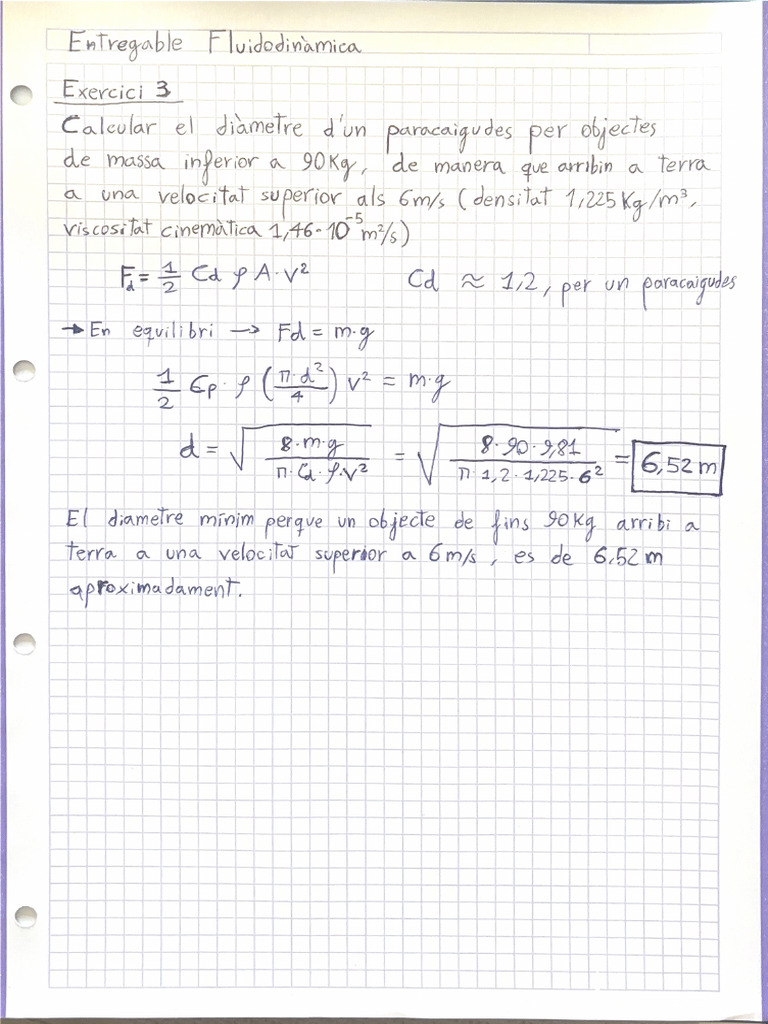 Entregable Fluidodinàmica
Exercici 3
Calcular el diàmetre d'un paracaigudes per objectes
de massa inferior a 90Kg, de manera que arribin a terra
a una velocitat superior als 6m/s (densitat 1,225 Kg/m³,
viscositat cinemàtica 1,46·10⁻⁵ m²/s)
F_d = 1/2 Cd ρ A·v² Cd ≈ 1,2, per un paracaigudes
→ En equilibri → Fd = m·g
1/2 Cp · ρ (π·d²/4) v² = m·g
d = √(8·m·g / π·Cd·ρ·v²) = √(8·90·9,81 / π·1,2·1,225·6²) = 6,52 m
El diametre mínim perque un objecte de fins 90Kg arribi a
terra a una velocitat superior a 6m/s, es de 6,52 m
aproximadament.